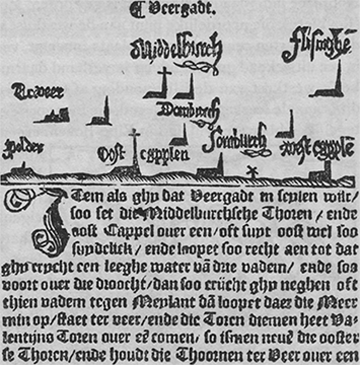 ¶ Veergadt.
Middelburch
Flisinghē
Traveer
Domburch
Polder
Oost cappelen
Soubburch
West cappelē
Item als ghy dat Veergadt in seylen wilt/
soo set die Middelburchsche Thoren / ende
oost Cappel over een/oft suyt oost wel soo
suydelick/ ende loopet soo recht aen tot dat
ghy crycht een leeghe water vā drie vadem/ ende soo
voort over die droocht/dan soo crücht ghy neghen oft
thien vadem tegen Meylant dā loopet daer die Meer
min op/staet ter veer/ende die Toren diemen heet Va-
lentijns Toren over eē comen/ so ismen neuē die ooster
se Thoren/ende houdt die Thoornen ter Veer over een